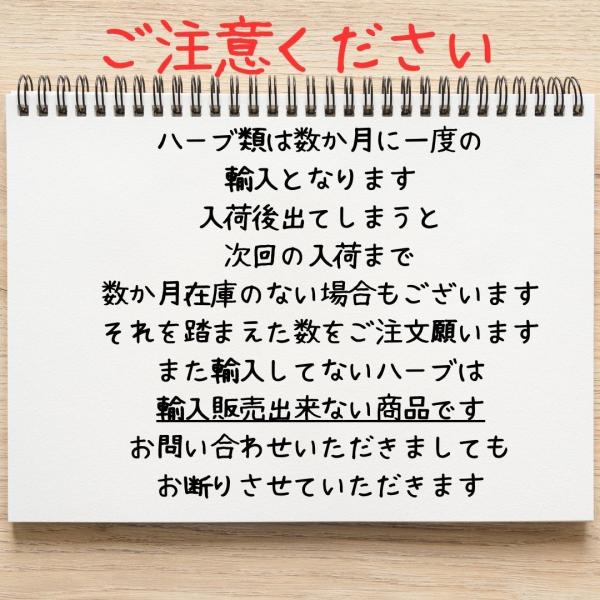 ご注意ください
ハーブ類は数か月に一度の
輸入となります
入荷後出てしまうと
次回の入荷まで
数か月在庫のない場合もございます
それを踏まえた数をご注文願います
また輸入してないハーブは
輸入販売出来ない商品です
お問い合わせいただきましても
お断りさせていただきます